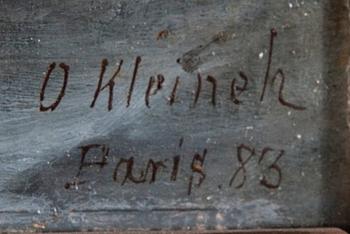 O Kleineh
Paris. 83